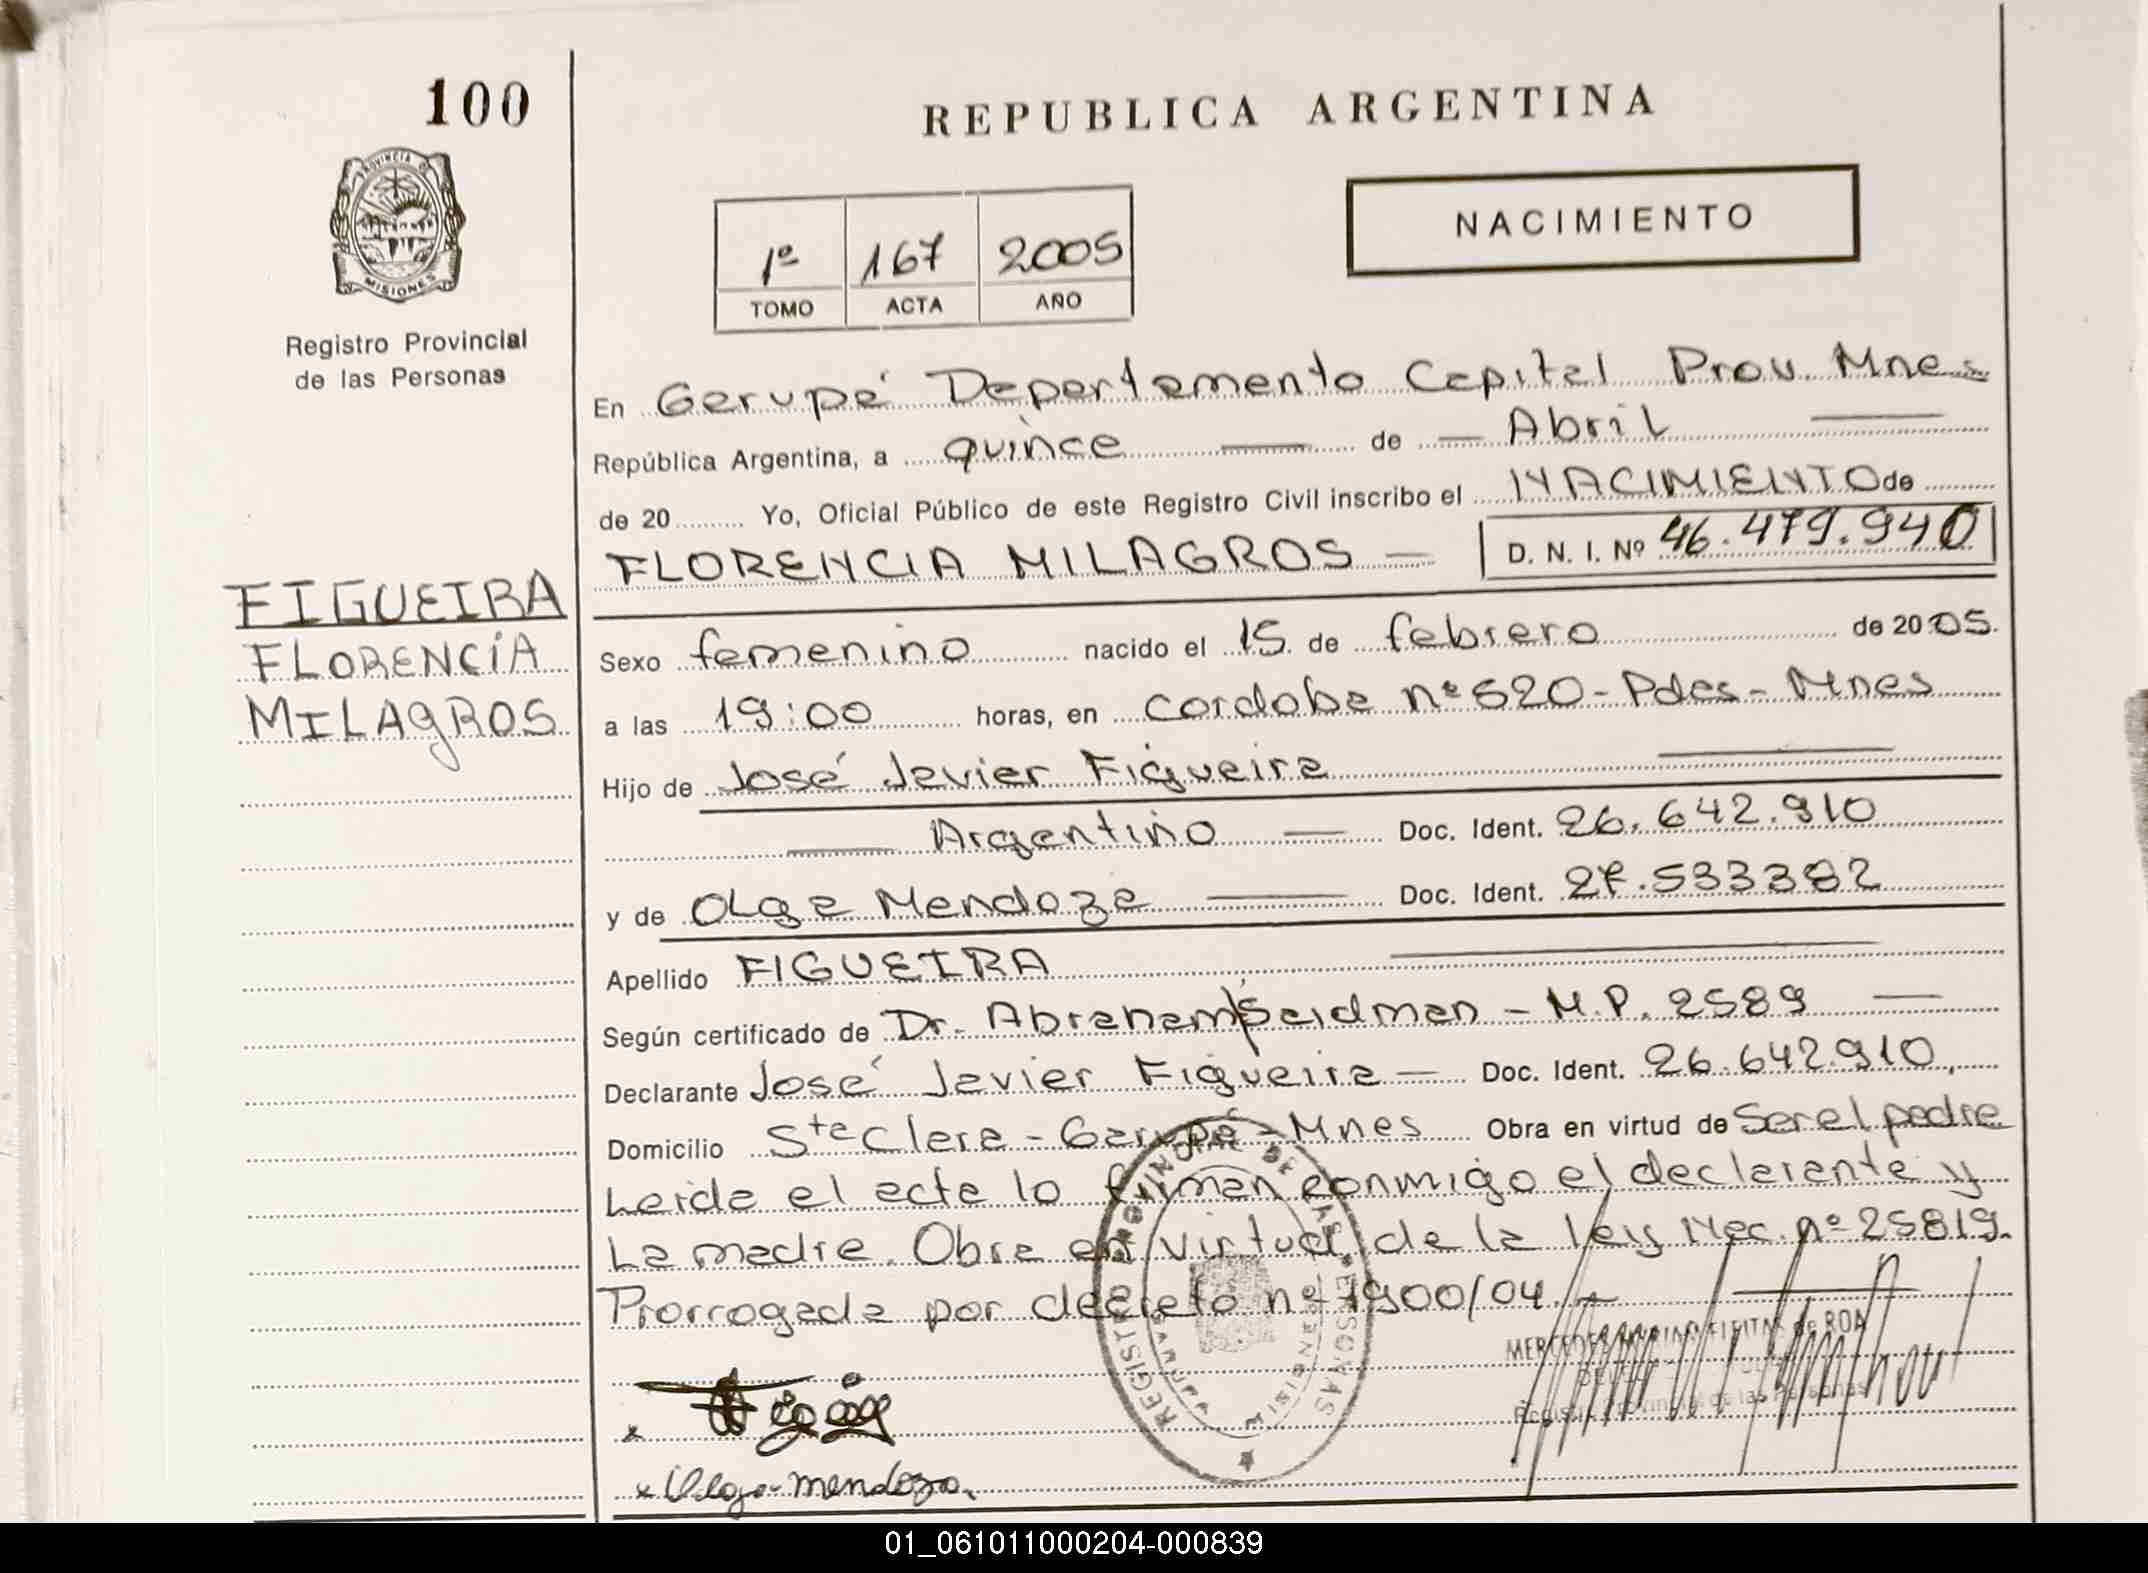 100
REPUBLICA ARGENTINA
PROVINCIA DE
MISIONES
Registro Provincial
de las Personas
NACIMIENTO
1º 167 2005
TOMO ACTA AÑO
En Garupá Departamento Capital Prov. Mnes
República Argentina, a quince — de — Abril —
de 20 Yo, Oficial Público de este Registro Civil inscribo el NACIMIENTO de
FLORENCIA MILAGROS — D. N. I. Nº 46.479.940
FIGUEIRA
FLORENCIA
MILAGROS
Sexo femenino nacido el 15 de febrero de 2005.
a las 19:00 horas, en cordoba nº 520 - Pdas - Mnes
Hijo de José Javier Figueira —
— Argentino — Doc. Ident. 26.642.910
y de Olga Mendoza — Doc. Ident. 27.533382
Apellido FIGUEIRA —
Según certificado de Dr. Abraham Seidman - M.P. 2589 —
Declarante José Javier Figueira — Doc. Ident. 26.642.910,
Domicilio Sta Clara - Garupá - Mnes Obra en virtud de Ser el padre
Leida el acta lo firman conmigo el declarante y
La madre. Obra en virtud de la ley Nac. nº 25819.
Prorrogada por decreto nº 1900/04. —
REGISTRO PROVINCIAL DE LAS PERSONAS
MERCEDES de ROA
Registro Provincial de las Personas
x
x Olga mendoza.
01_061011000204-000839